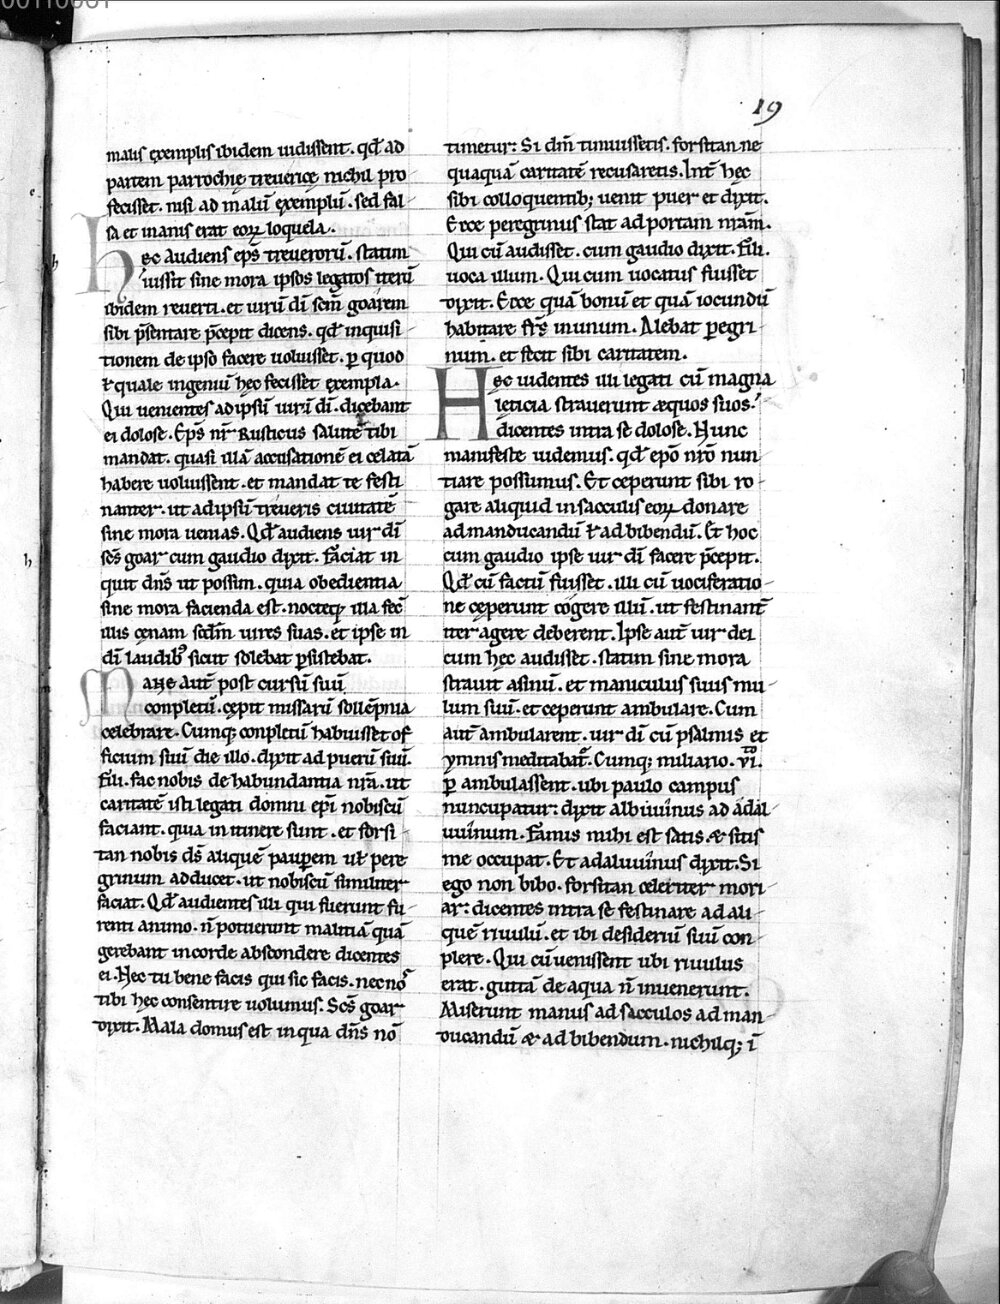 19
malis exemplis ibidem uidissent. qđ ad
partem parrochię treuericę nichil pro
fecisset. nisi ad malū exemplū. sed fal
sa et inanis erat eoꝝ loquela.
Hęc audiens ep̄s treuerorū. statim
iussit sine mora ipsos legatos iterū
ibidem reuerti. et uirū dī sc̄m goarem
sibi p̄sentare p̄cepit dicens. qđ inquisi
tionem de ipso facere uoluisset. ꝑ quod
ł quale ingeniū hęc fecisset exempla.
Qui uenientes ad ipsū uirū dī. dicebant
ei dolose. Ep̄s nr̄ Rusticus salutē tibi
mandat. quasi illā accusationē ei celatā
habere uoluissent. et mandat te festi
nanter. ut ad ipsū treueris ciuitatē
sine mora uenias. Qđ audiens uir dī
sc̄s goar cum gaudio dixit. Faciat in
quit dn̄s ut possim. quia obedientia
sine mora facienda est. nocteq; illa fec̄
illis cęnam scđm uires suas. et ipse in
dī laudib; sicut solebat ꝑsistebat.
Mane aut̄ post cursū suū
conpletū. cępit missarū sollēpnia
celebrare. Cumq; conpletū habuisset of
ficium suū die illo. dixit ad puerū suū.
Fili. fac nobis de habundantia nr̄a. ut
caritatē isti legati domni ep̄i nobiscū
faciant. quia in itinere sunt. et forsi
tan nobis ds̄ aliquē pauꝑem uł pere
grinum adducet. ut nobiscū similiter
faciat. Qđ audientes illi qui fuerunt fu
renti animo. n̄ potuerunt malitiā quā
gerebant in corde abscondere dicentes
ei. Hec tu bene facis qui sic facis. nec nos
tibi hęc consentire uolumus. Sc̄s goar
dixit. Mala domus est in qua dn̄s nō
timetur: Si dn̄m timuissetis. forsitan ne
quaquā caritatē recusaretis. Int̄ hęc
sibi colloquentib; uenit puer et dixit.
Ecce peregrinus stat ad portam nr̄am.
Qui cū audisset. cum gaudio dixit. Fili.
uoca illum. Qui cum uocatus fuisset
dixit. Ecce quā bonū et quā iocundū
habitare fr̄s in unum. Alebat ꝑegri
num. et fecit sibi caritatem.
Hęc uidentes illi legati cū magna
leticia strauerunt æquos suos.
dicentes intra se dolose. Hunc
manifeste uidemus. qđ ep̄o nr̄o nun
tiare possumus. Et ceperunt sibi ro
gare aliquid in sacculis eoꝝ donare
ad manducandū ł ad bibendū. Et hoc
cum gaudio ipse uir dī facere p̄cepit.
Qđ cū factū fuisset. illi cū uociferatio
ne cęperunt cogere illū. ut festinant̄
iter agere deberent. Ipse aut̄ uir dei
cum hęc audisset. statim sine mora
strauit asinū. et maniculus suus mu
lum suū. et ceperunt ambulare. Cum
aut̄ ambularent. uir dī cū psalmis et
ymnis meditabat̄. Cumq; miliario. vi.to
ꝑ ambulassent. ubi paulo campus
nuncupatur: dixit albiuuinus ad adal
uuinum. Famis mihi est satis. & sitis
me occupat. Et adaluuinus dixit. Si
ego non bibo. forsitan celeriter mori
ar: dicentes intra se festinare ad ali
quē riuulū. et ibi desideriū suū con
plere. Qui cū uenissent ubi riuulus
erat. guttā de aqua n̄ inuenerunt.
Miserunt manus ad sacculos ad man
ducandū & ad bibendum. nichilq; ī